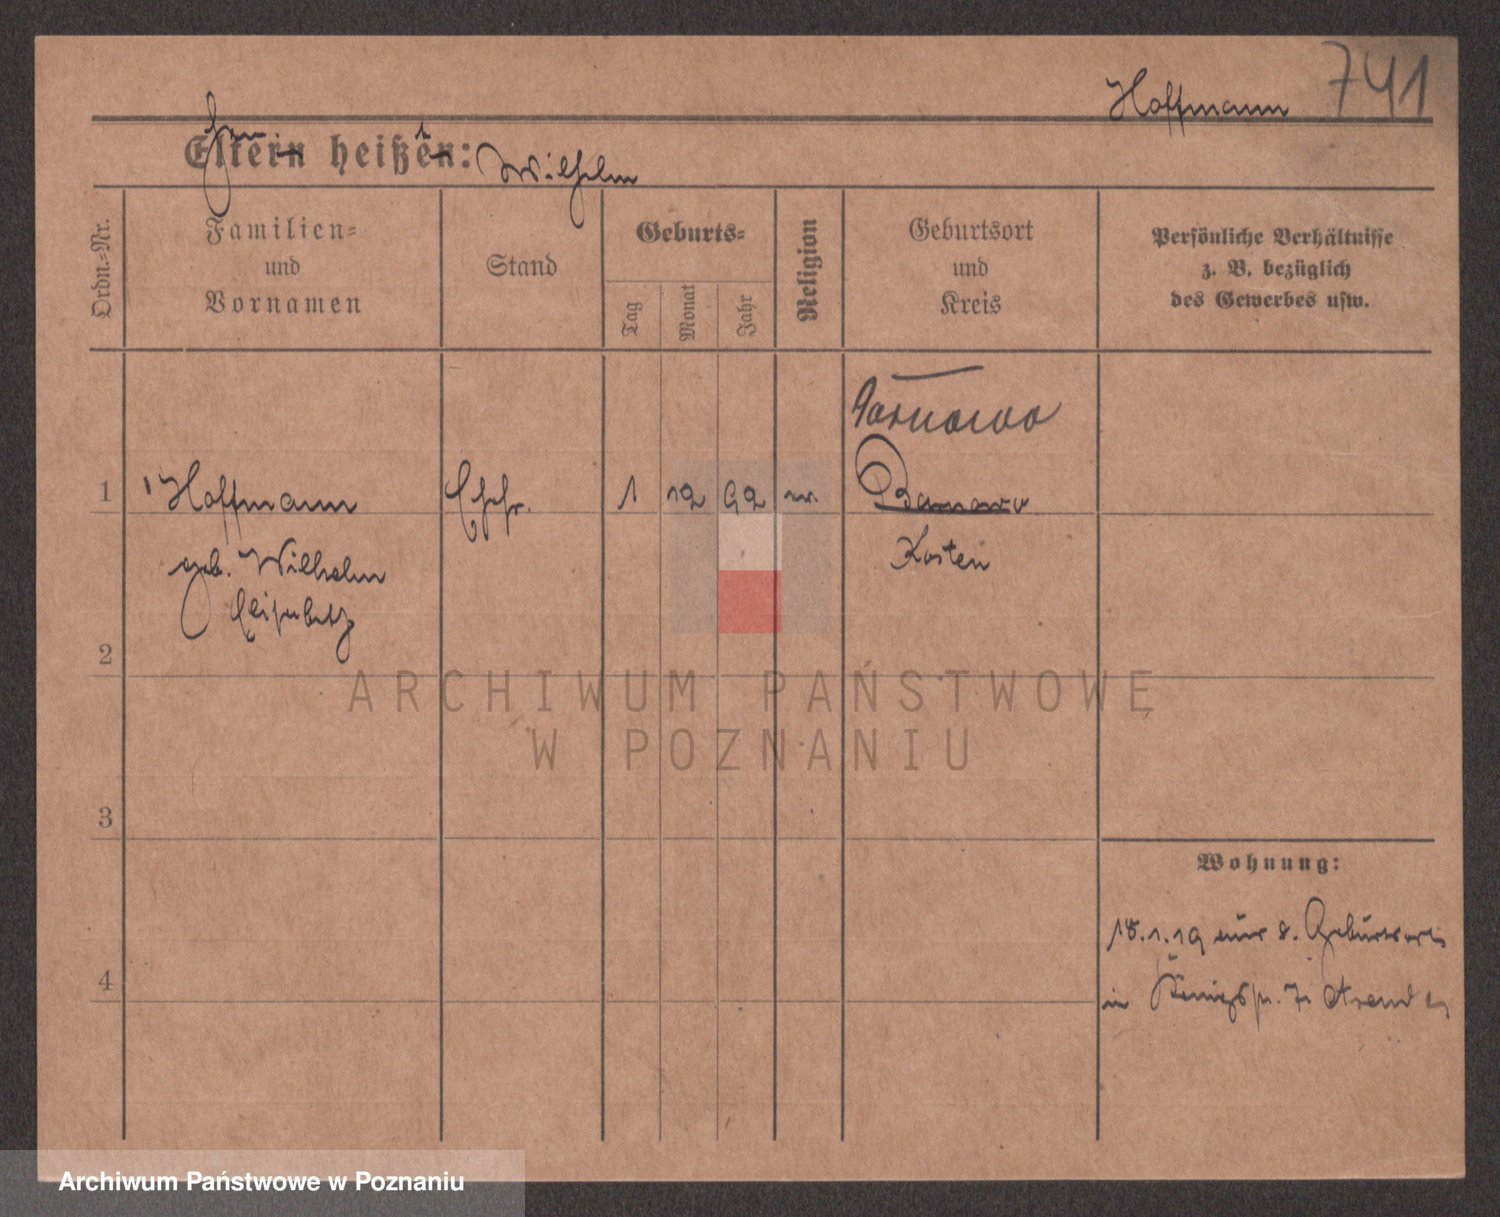 Hoffmann 741
Eltern heißen: Wilhelm
Ordn.-Nr.
Familien-
und
Vornamen
Stand
Geburts-
Tag
Monat
Jahr
Religion
Geburtsort
und
Kreis
Persönliche Verhältnisse
z. B. bezüglich
des Gewerbes usw.
Tarnowo
1 Hoffmann Ehefr. 1 12 92 ev.
geb. Wilhelm
Elisabeth
Kosten
2
3
4
Wohnung:
18.1.19 Geburtsort
in Königspl. 7
ARCHIWUM PAŃSTWOWE
W POZNANIU
Archiwum Państwowe w Poznaniu